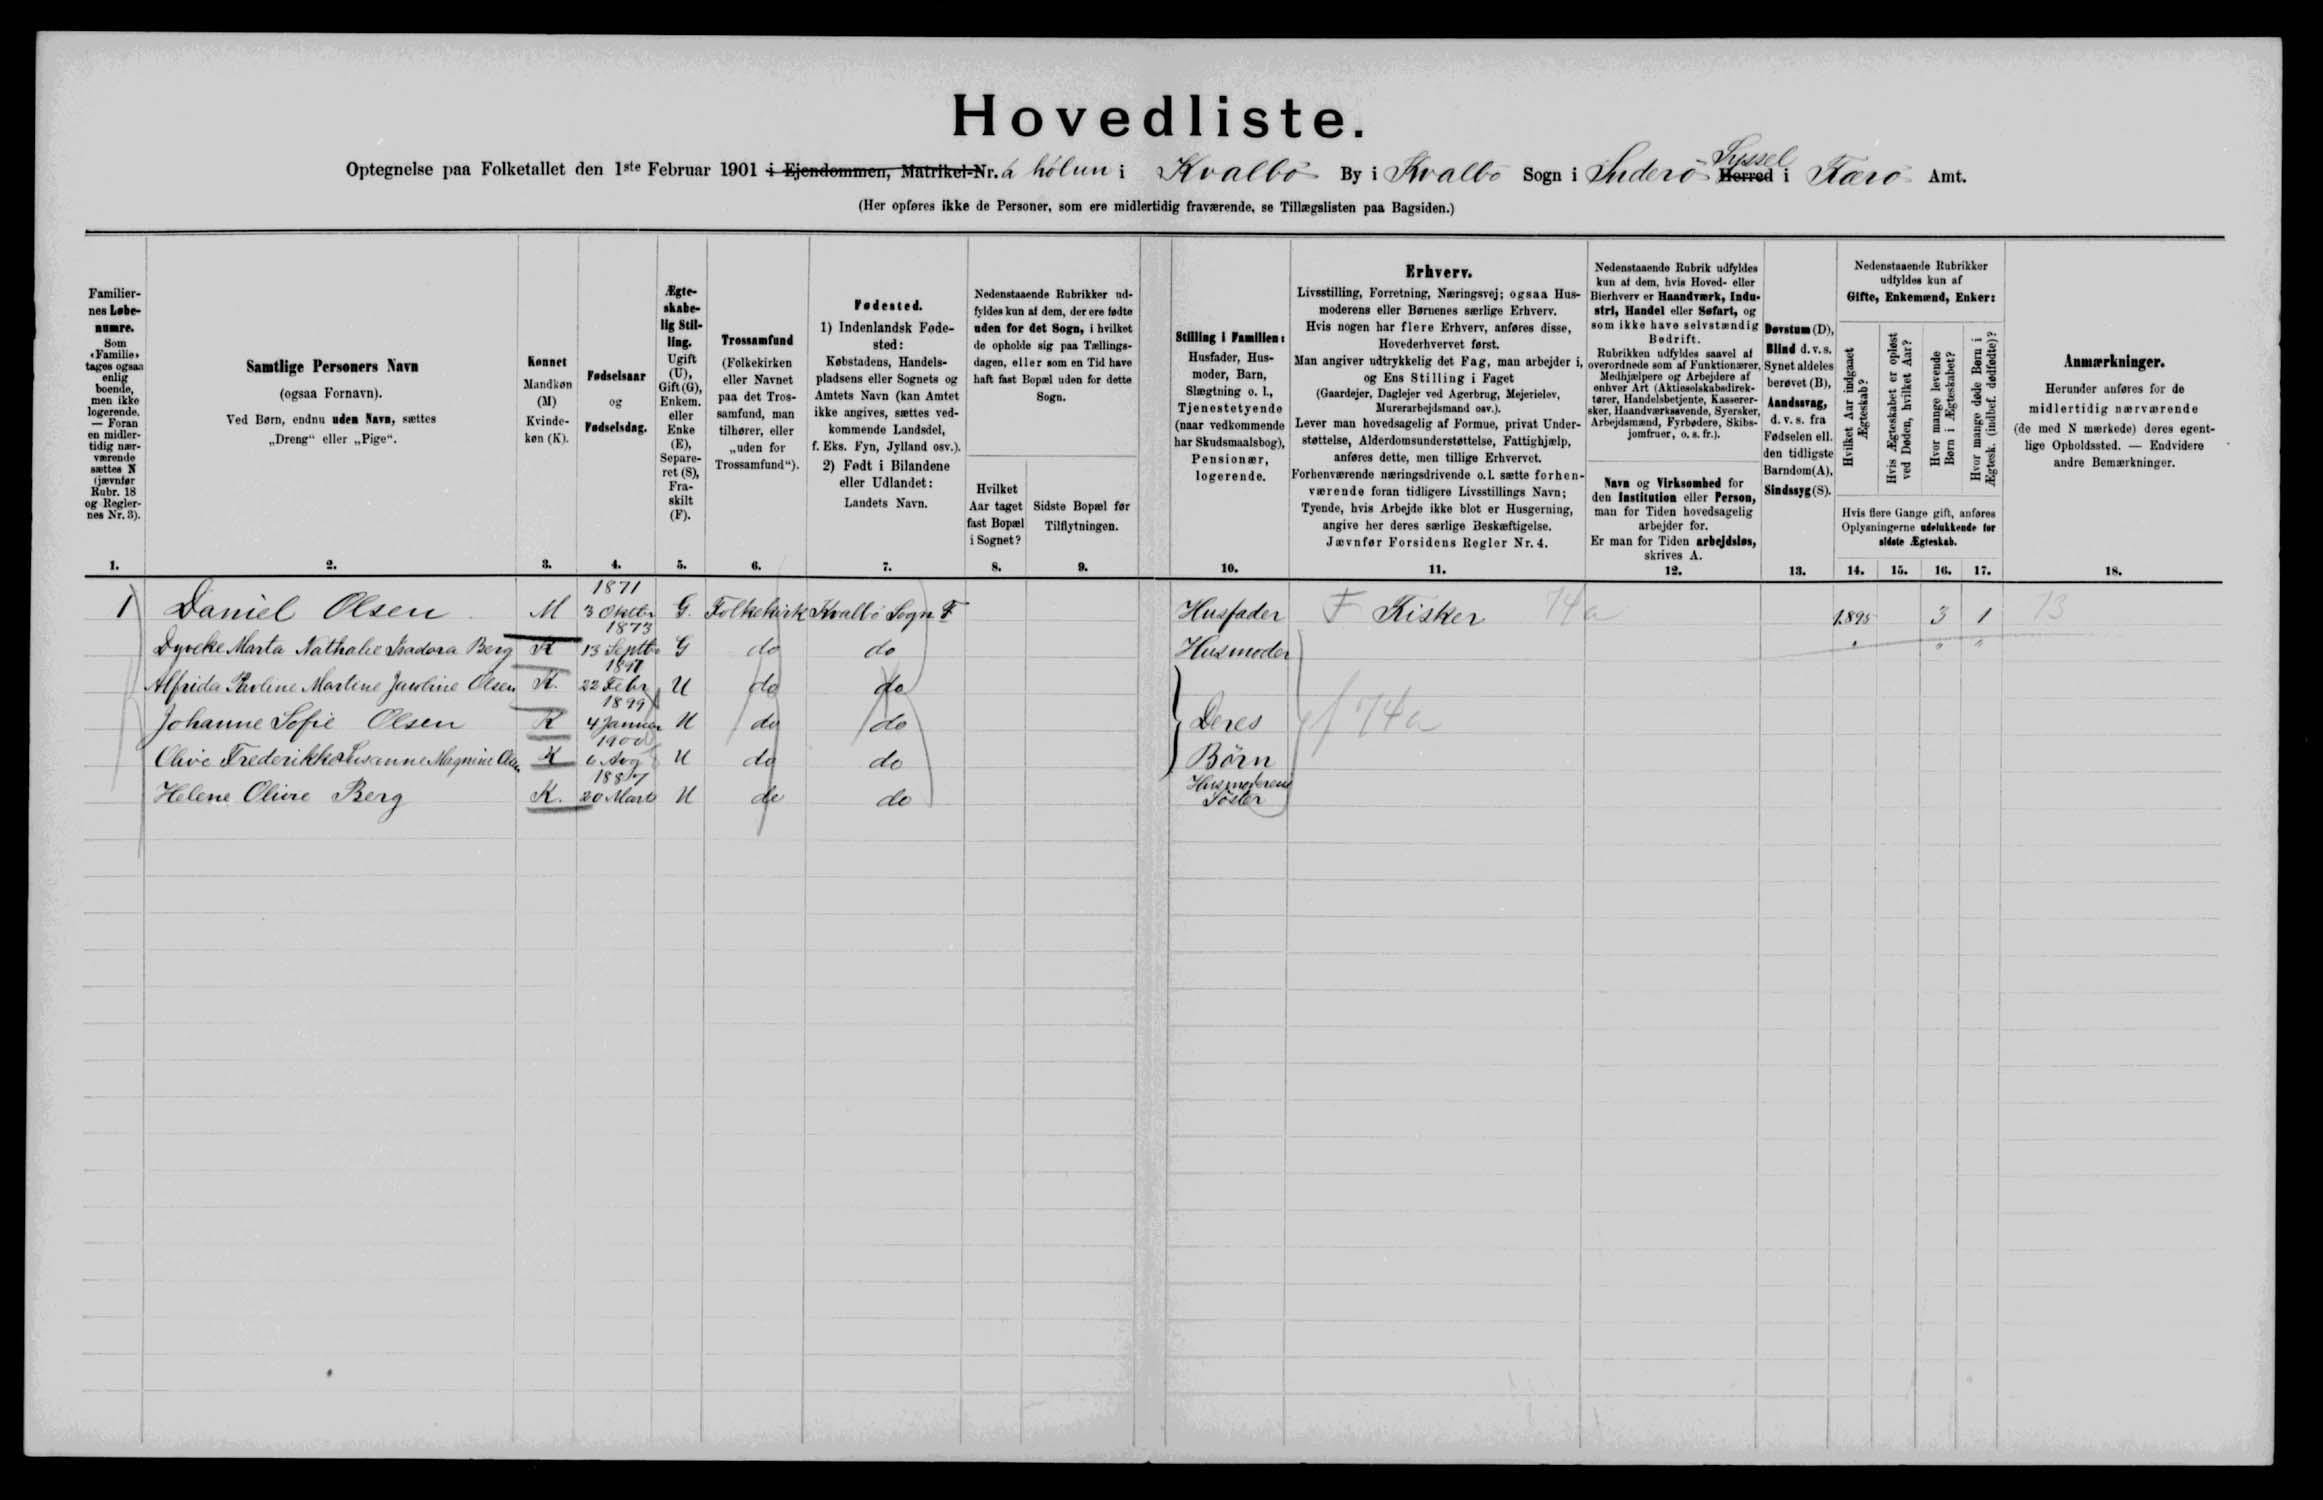 Hovedliste.
Optegnelse paa Folketallet den 1ste Februar 1901 i Ejendommen, Matrikel-Nr. á hólun i Kvalbö By i Kvalbö Sogn i Suderö Syssel Herred i Færö Amt.
(Her opføres ikke de Personer, som ere midlertidig fraværende, se Tillægslisten paa Bagsiden.)
Familiernes Løbenumre. Som «Familie» tages ogsaa enlig boende, men ikke logerende. — Foran en midlertidig nærværende sættes N (jævnfør Rubr. 18 og Reglernes Nr. 3).
Samtlige Personers Navn
(ogsaa Fornavn).
Ved Børn, endnu uden Navn, sættes „Dreng“ eller „Pige“.
Kønnet
Mandkøn (M)
Kvindekøn (K).
Fødselsaar og Fødselsdag.
Ægteskabelig Stilling.
Ugift (U), Gift (G), Enkem. eller Enke (E), Separeret (S), Fraskilt (F).
Trossamfund
(Folkekirken eller Navnet paa det Trossamfund, man tilhører, eller „uden for Trossamfund“).
Fødested.
1) Indenlandsk Fødested:
Købstadens, Handelspladsens eller Sognets og Amtets Navn (kan Amtet ikke angives, sættes vedkommende Landsdel, f. Eks. Fyn, Jylland osv.).
2) Født i Bilandene eller Udlandet:
Landets Navn.
Nedenstaaende Rubrikker udfyldes kun af dem, der ere fødte uden for det Sogn, i hvilket de opholde sig paa Tællingsdagen, eller som en Tid have haft fast Bopæl uden for dette Sogn.
Hvilket Aar taget fast Bopæl i Sognet?
Sidste Bopæl før Tilflytningen.
Stilling i Familien:
Husfader, Husmoder, Barn, Slægtning o. l., Tjenestetyende (naar vedkommende har Skudsmaalsbog), Pensionær, logerende.
Erhverv.
Livsstilling, Forretning, Næringsvej; ogsaa Husmoderens eller Børnenes særlige Erhverv.
Hvis nogen har flere Erhverv, anføres disse, Hovederhvervet først.
Man angiver udtrykkelig det Fag, man arbejder i, og Ens Stilling i Faget
(Gaardejer, Daglejer ved Agerbrug, Mejerielev, Murerarbejdsmand osv.).
Lever man hovedsagelig af Formue, privat Understøttelse, Alderdomsunderstøttelse, Fattighjælp, anføres dette, men tillige Erhvervet.
Forhenværende næringsdrivende o. l. sætte forhenværende foran tidligere Livsstillings Navn;
Tyende, hvis Arbejde ikke blot er Husgerning, angive her deres særlige Beskæftigelse.
Jævnfør Forsidens Regler Nr. 4.
Nedenstaaende Rubrik udfyldes kun af dem, hvis Hoved- eller Bierhverv er Haandværk, Industri, Handel eller Søfart, og som ikke have selvstændig Bedrift.
Rubrikken udfyldes saavel af overordnede som af Funktionærer, Medhjælpere og Arbejdere af enhver Art (Aktieselskabsdirektører, Handelsbetjente, Kasserersker, Haandværkssvende, Syersker, Arbejdsmænd, Fyrbødere, Skibsjomfruer, o. s. fr.).
Navn og Virksomhed for den Institution eller Person, man for Tiden hovedsagelig arbejder for.
Er man for Tiden arbejdsløs, skrives A.
Døvstum (D), Blind d. v. s. Synet aldeles berøvet (B), Aandssvag, d. v. s. fra Fødselen ell. den tidligste Barndom (A), Sindssyg (S).
Nedenstaaende Rubrikker udfyldes kun af Gifte, Enkemænd, Enker:
Hvilket Aar indgaaet Ægteskab?
Hvis Ægteskabet er opløst ved Døden, hvilket Aar?
Hvor mange levende Børn i Ægteskabet?
Hvor mange døde Børn i Ægtesk. (indbef. dødfødte)?
Hvis flere Gange gift, anføres Oplysningerne udelukkende for sidste Ægteskab.
Anmærkninger.
Herunder anføres for de midlertidig nærværende (de med N mærkede) deres egentlige Opholdssted. — Endvidere andre Bemærkninger.
1. 2. 3. 4. 5. 6. 7. 8. 9. 10. 11. 12. 13. 14. 15. 16. 17. 18.
1 Daniel Olsen M 1871 3 Oktbr G. Folkekirk Kvalbö Sogn F Husfader F Fisker 74a 1895 3 1 13
Dyveke Marta Nathalie Isadora Berg K 1873 13 Septbr G do do Husmoder " " "
Alfrida Pauline Martine Jacoline Olsen K. 1897 22 Febr U do do
Johanne Sofie Olsen K 1899 4 Januar U do do Deres f 74a
Olive Frederikke Susanne Magnine Olsen K 1900 6 Aug U do do Börn
Helene Olivie Berg K. 1887 20 Marts U do do Husmoderens Söster